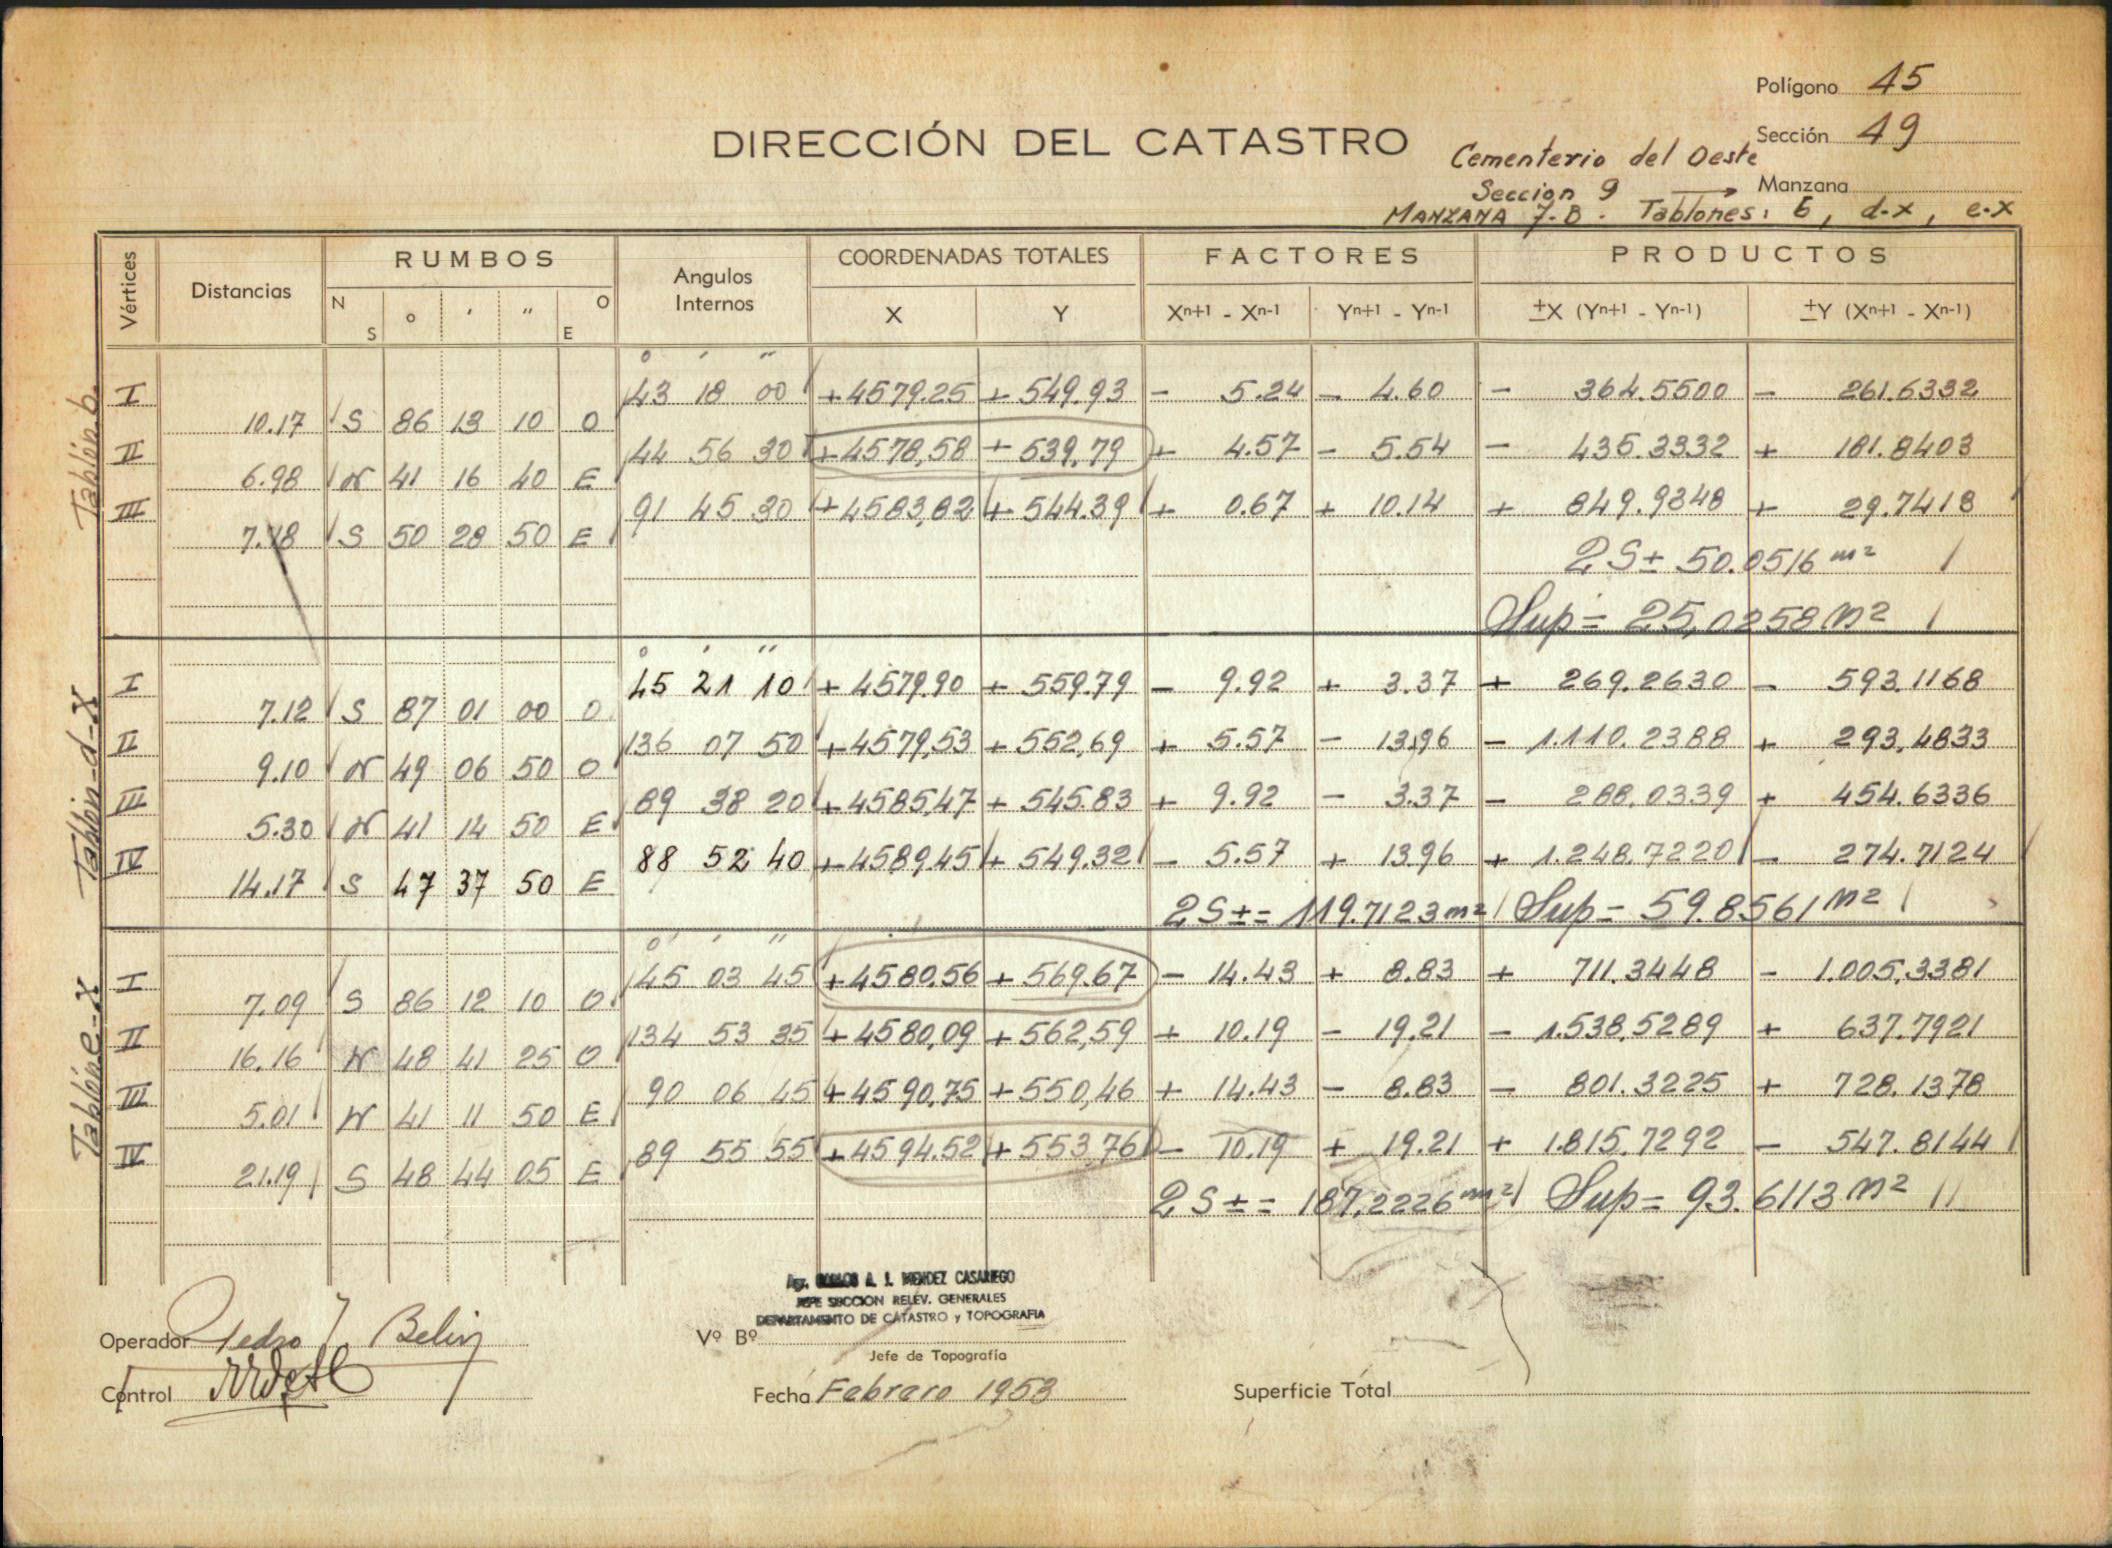 Polígono 45
DIRECCIÓN DEL CATASTRO
Sección 49
Cementerio del Oeste
Seccion 9 → Manzana
MANZANA 7-B. Tablones: b, d-x, e-x
Vértices Distancias RUMBOS Angulos Internos COORDENADAS TOTALES FACTORES PRODUCTOS
N S ° ' " O E X Y Xn+1 - Xn-1 Yn+1 - Yn-1 ±X (Yn+1 - Yn-1) ±Y (Xn+1 - Xn-1)
Tablón b.
° ' "
I 43 18 00 +4579.25 + 549.93 - 5.24 - 4.60 - 364.5500 - 261.6332
10.17 S 86 13 10 O
II 44 56 30 +4578,58 + 539,79 + 4.57 - 5.54 - 435.3332 + 181.8403
6.98 N 41 16 40 E
III 91 45 30 +4583,82 + 544.39 + 0.67 + 10.14 + 849.9348 + 29.7418
7.18 S 50 28 50 E
2S± 50.0516 m²
Sup = 25,0258 m²
Tablón-d-X
° ' "
I 45 21 10 + 4579.90 + 559.79 - 9.92 + 3.37 + 269.2630 - 593.1168
7.12 S 87 01 00 O
II 136 07 50 +4579,53 + 552,69 + 5.57 - 13,96 - 1.110.2388 + 293.4833
9.10 N 49 06 50 O
III 89 38 20 +4585,47 + 545.83 + 9.92 - 3.37 - 288.0339 + 454.6336
5.30 N 41 14 50 E
IV 88 52 40 +4589,45 + 549.32 - 5.57 + 13.96 + 1.248.7220 - 274.7124
14.17 S 47 37 50 E
2S±= 119.7123 m² Sup = 59.8561 m²
Tablón e-X
° ' "
I 45 03 45 +4580.56 + 569.67 - 14.43 + 8.83 + 711.3448 - 1.005,3381
7.09 S 86 12 10 O
II 134 53 35 +4580,09 + 562,59 + 10.19 - 19.21 - 1.538.5289 + 637.7921
16.16 N 48 41 25 O
III 90 06 45 +4590,75 + 550,46 + 14.43 - 8.83 - 801.3225 + 728.1378
5.01 N 41 11 50 E
IV 89 55 55 +4594.52 + 553.76 - 10.19 + 19.21 + 1.815.7292 - 547.8144
21.19 S 48 44 05 E
2S±= 187,2226 m² Sup = 93.6113 m²
Agr. CARLOS A. J. MENDEZ CASARIEGO
JEFE SECCION RELEV. GENERALES
DEPARTAMENTO DE CATASTRO y TOPOGRAFIA
Operador Pedro J. Belin
Vº Bº
Jefe de Topografía
Control
Fecha Febrero 1953
Superficie Total